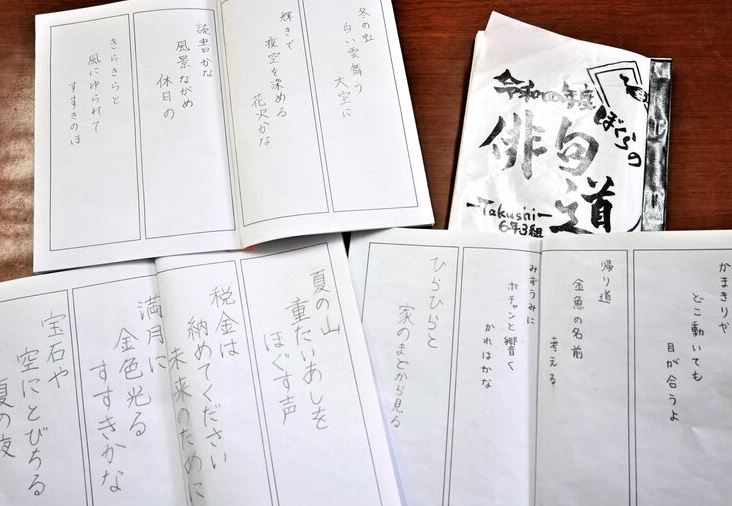 冬の虹
白い雲舞う
大空に
輝きで
夜空を染める
花火かな
読書かな
風景ながめ
休日の
きらきらと
風にゆられて
すすきのほ
令和四年度
ぼくらの
俳句
道
-Takushi-
6年3組
夏の山
重たいあしを
ほぐす声
税金は
納めてください
未来のために
満月に
金色光る
すすきかな
宝石や
空にとびちる
夏の夜
かまきりや
どこ動いても
目が合うよ
帰り道
金魚の名前
考える
みずうみに
ポチャンと響く
かれはかな
ひらひらと
家のまどから見る